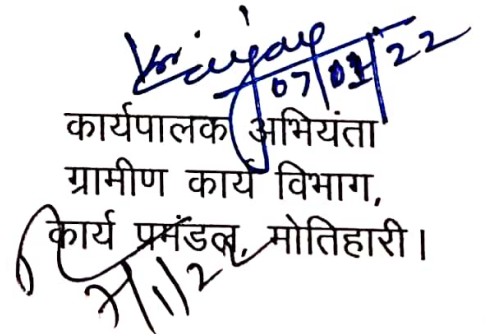 07/01/22
कार्यपालक अभियंता
ग्रामीण कार्य विभाग,
कार्य प्रमंडल, मोतिहारी।